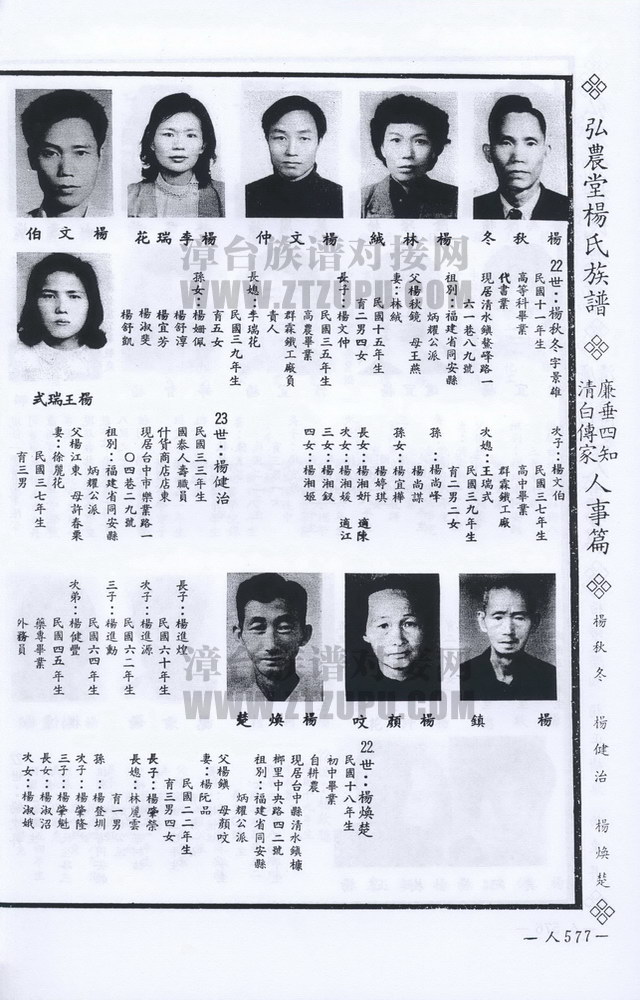 弘農堂楊氏族譜
廉垂四知
清白傳家
人事篇
楊秋冬　楊健治　楊煥楚
－人577－
楊秋冬
楊林絨
楊文仲
楊李瑞花
楊文伯
楊王瑞式
22世：楊秋冬字景雄
民國十一年生
高等科畢業
代書業
現居清水鎮鰲峰路一
六一巷八九號
祖別：福建省同安縣
炳耀公派
父楊秋鏡　母王燕
妻：林絨
民國十五年生
育二男四女
長子：楊文仲
民國三五年生
高農畢業
群霖鐵工廠員
貴人
長媳：李瑞花
民國三九年生
育五女
孫女：楊姍佩
楊舒淳
楊宜芳
楊淑斐
楊舒凱
次子：楊文伯
民國三七年生
高中畢業
群霖鐵工廠
次媳：王瑞式
民國三九年生
育二男二女
孫：楊尚峰
楊尚謀
孫女：楊宜樺
楊婷琪
長女：楊湘姸　適陳
次女：楊湘媛　適江
三女：楊湘釵
四女：楊湘姬
23世：楊健治
民國三三年生
國泰人壽職員
什貨商店店東
現居台中市樂業路一
〇四巷二九號
祖別：福建省同安縣
炳耀公派
父楊江東　母許春粟
妻：徐麗花
民國三七年生
育三男
長子：楊進煌
民國六十年生
次子：楊進源
民國六二年生
三子：楊進勳
民國六四年生
次弟：楊健豐
民國四五年生
藥專畢業
外務員
楊鎮
楊顏吱
楊煥楚
22世：楊煥楚
民國十八年生
初中畢業
自耕農
現居台中縣清水鎮槺
榔里中央路四二號
祖別：福建省同安縣
炳耀公派
父楊鎮　母顏吱
妻：楊阮品
民國二二年生
育三男四女
長子：楊肇榮
長媳：林麗雲
育一男
孫：楊登圳
次子：楊肇隆
三子：楊肇魁
長女：楊淑沼
次女：楊淑娥
漳台族谱对接网
WWW.ZTZUPU.COM
漳台族谱对接网
WWW.ZTZUPU.COM